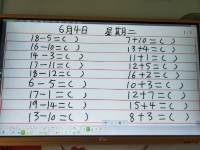 6月4日 星期二
18-5=( ) 7+10=( )
16-10=( ) 13+4=( )
14-3=( ) 11+1=( )
17-11=( ) 12+5=( )
18-12=( ) 16+2=( )
6-5=( ) 10+3=( )
17-1=( ) 12+7=( )
19-14=( ) 15+4=( )
13-10=( ) 8+3=( )